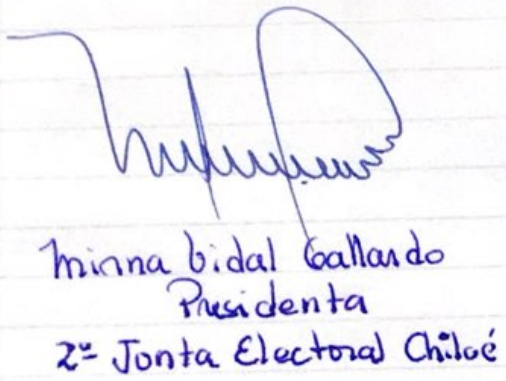 Mirna Vidal Gallardo
Presidenta
2º Junta Electoral Chiloé